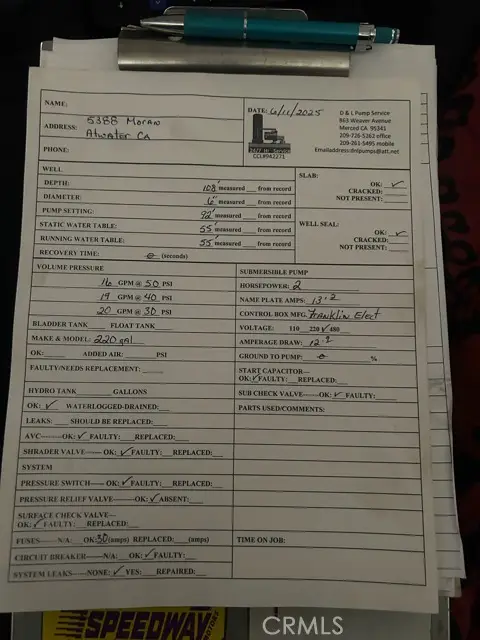 NAME:
ADDRESS: 5388 Moran
Atwater CA
PHONE:
DATE: 6/11/2025
D & L Pump Service
863 Weaver Avenue
Merced CA 95341
209-726-5362 office
209-261-5495 mobile
Emailaddress:dnlpumps@att.net
24/7 Hr Service
CCL#942271
WELL
DEPTH: 108' measured ___ from record
DIAMETER: 6" measured ___ from record
PUMP SETTING: 92' measured ___ from record
STATIC WATER TABLE: 55' measured ___ from record
RUNNING WATER TABLE: 55' measured ___ from record
RECOVERY TIME: 0 (seconds)
SLAB:
OK: ✓
CRACKED: ___
NOT PRESENT: ___
WELL SEAL:
OK: ✓
CRACKED: ___
NOT PRESENT: ___
VOLUME PRESSURE
16 GPM @ 50 PSI
19 GPM @ 40 PSI
20 GPM @ 30 PSI
BLADDER TANK ___ FLOAT TANK ___
MAKE & MODEL: 220 gal
OK: ___ ADDED AIR: ___ PSI
FAULTY/NEEDS REPLACEMENT: ___
HYDRO TANK ___ GALLONS
OK: ✓ WATERLOGGED-DRAINED: ___
LEAKS: ___ SHOULD BE REPLACED: ___
AVC------OK: ✓ FAULTY: ___ REPLACED: ___
SHRADER VALVE---- OK: ✓ FAULTY: ___
SYSTEM
PRESSURE SWITCH---- OK: ✓ FAULTY: ___ REPLACED: ___
PRESSURE RELIEF VALVE------OK: ✓ ABSENT: ___
SURFACE CHECK VALVE---
OK: ✓ FAULTY: ___ REPLACED: ___
FUSES---- N/A: ___ OK: 30 (amps) REPLACED: ___ (amps)
CIRCUIT BREAKER----N/A: ___ OK: ✓ FAULTY: ___
SYSTEM LEAKS-----NONE: ✓ YES: ___ REPAIRED: ___
SUBMERSIBLE PUMP
HORSEPOWER: 2
NAME PLATE AMPS: 13.2
CONTROL BOX MFG. Franklin Elect
VOLTAGE: 110 ___ 220 ✓ 480 ___
AMPERAGE DRAW: 12.2
GROUND TO PUMP: 0 %
START CAPACITOR---
OK: ✓ FAULTY: ___ REPLACED: ___
SUB CHECK VALVE---- OK: ✓ FAULTY: ___
PARTS USED/COMMENTS:
TIME ON JOB:
SPEEDWAY
MOTORS
CRMLS